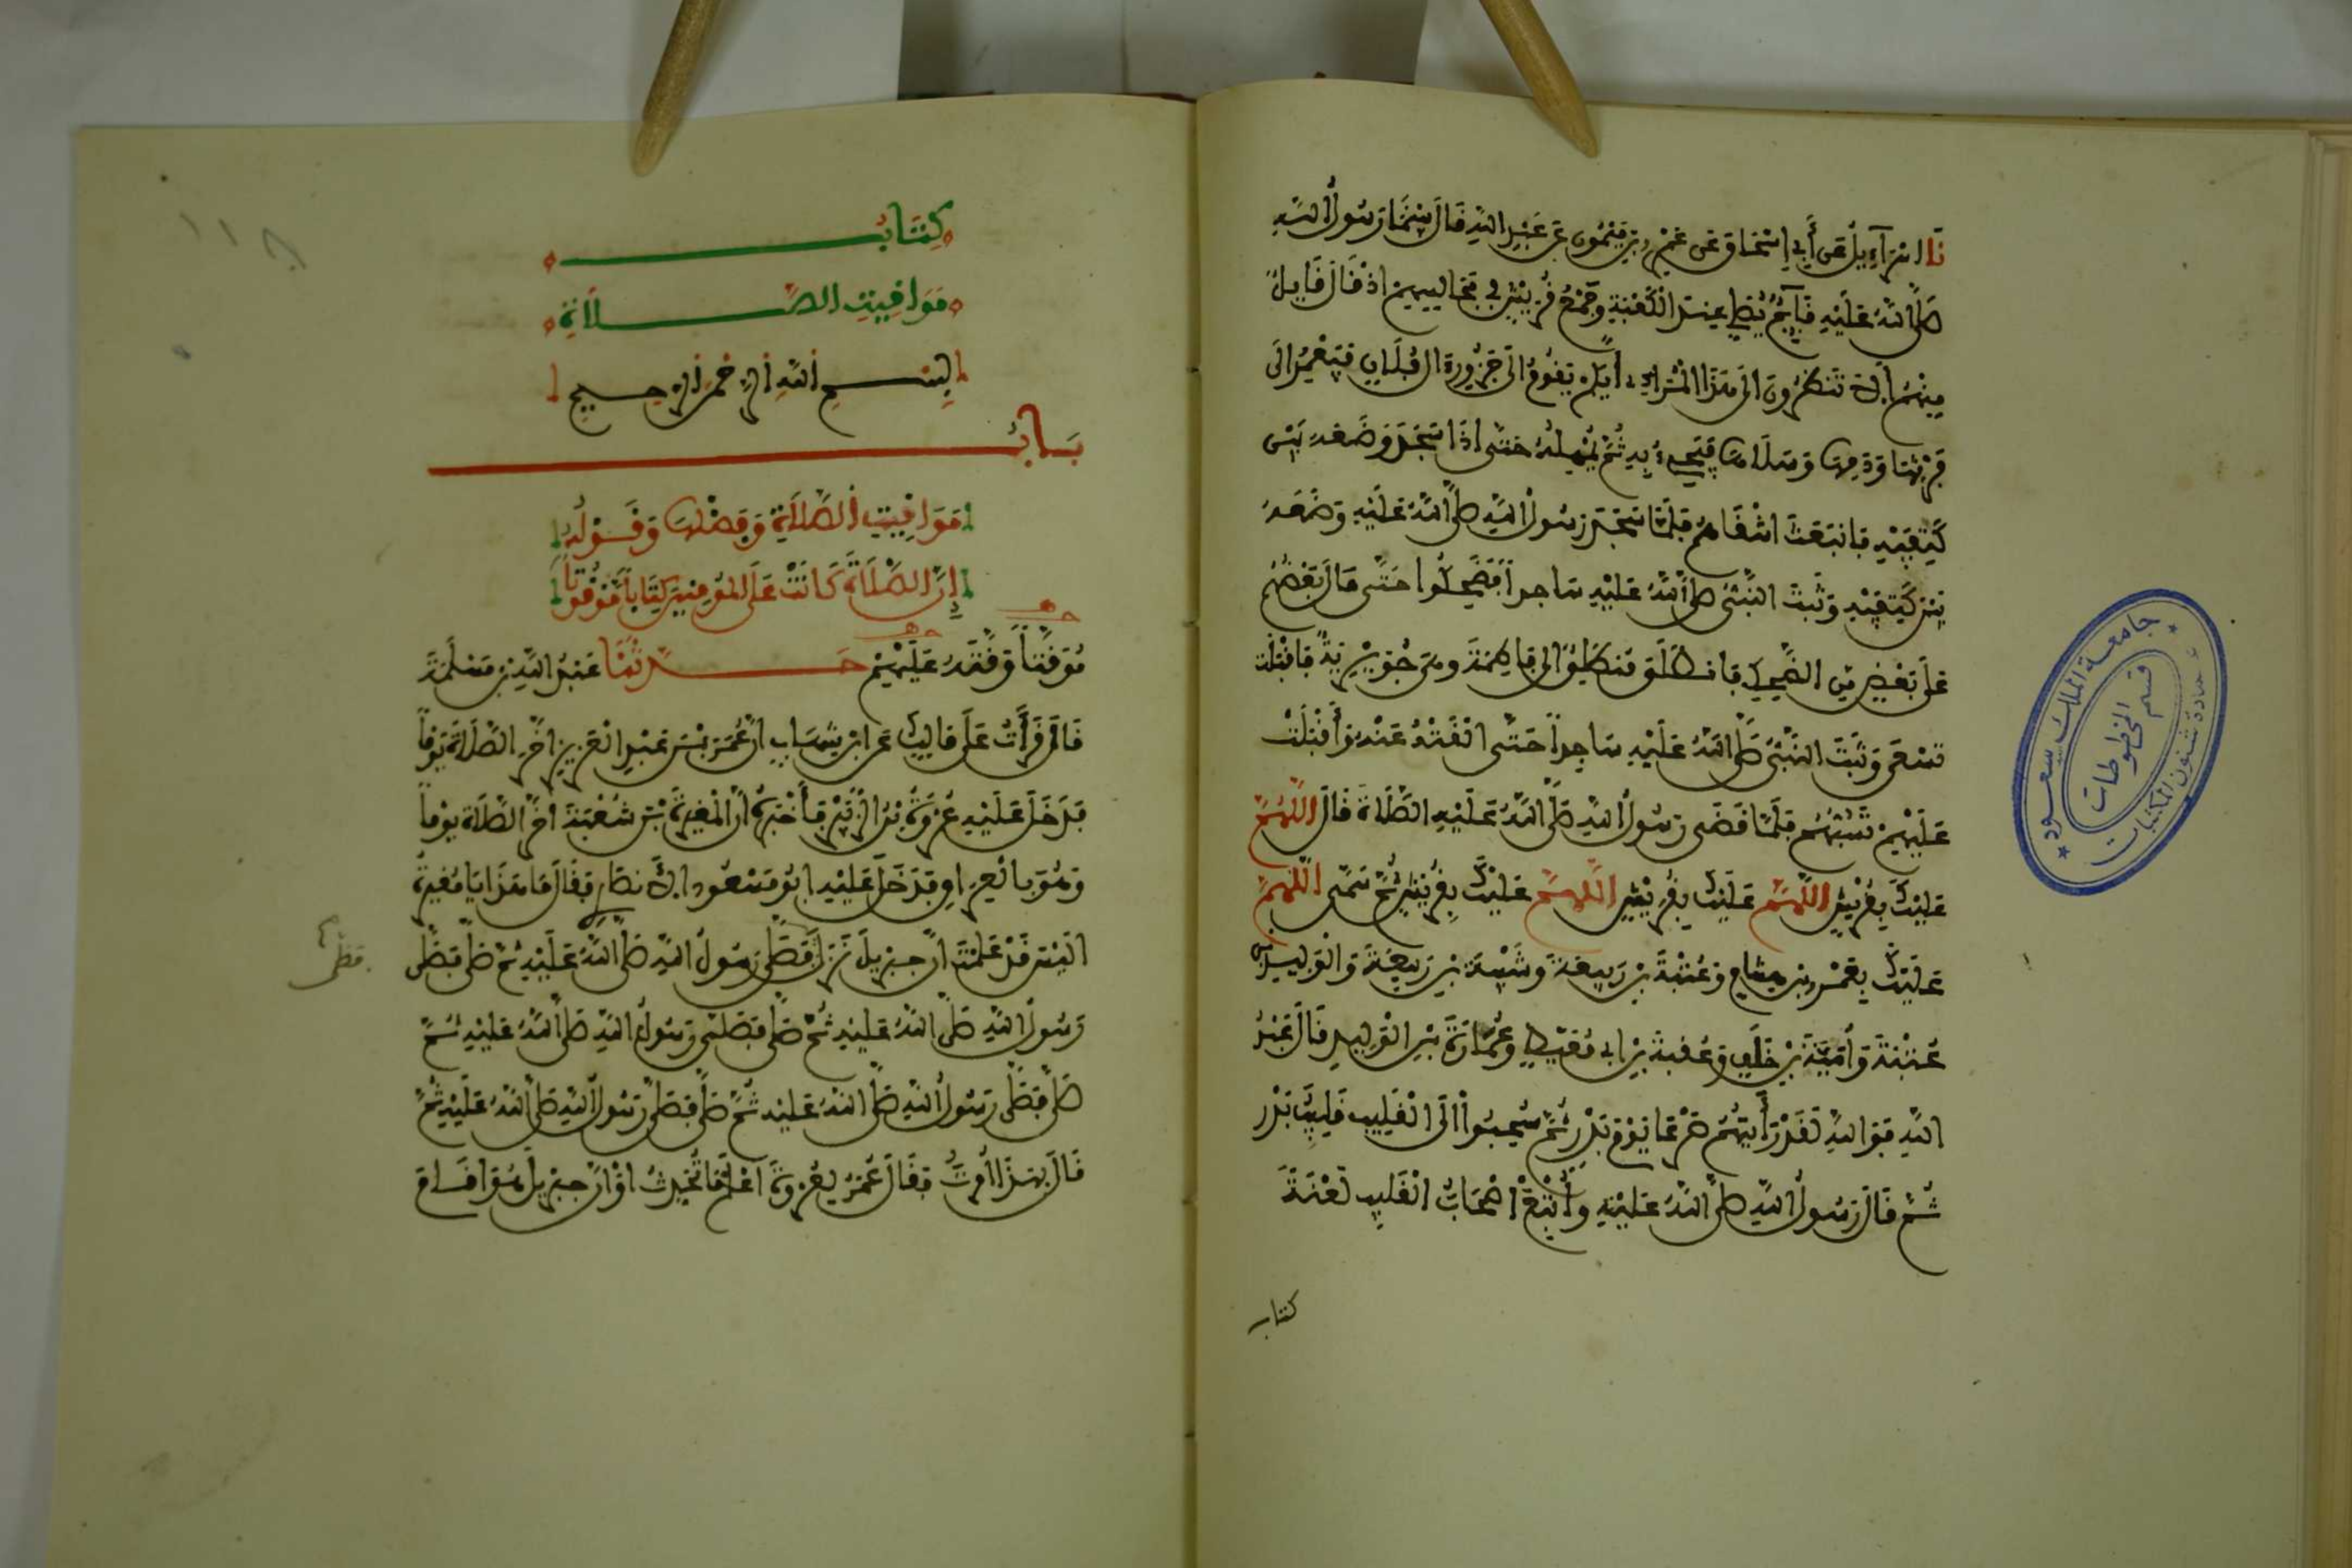 نا إسرآءيل عن أبي إسحاق عن عمرو بن ميمون عن عبد الله قال بينما رسول الله
صلى الله عليه قايم يصلي عند الكعبة وجمع قريش في مجاليسهم اذ قال قايل
منهم ألا تنظرون الى هذا المراءي أيكم يقوم الى جزور ال فلان فيعمد الى
فرثها ودمها وسلاها فيجيء به ثم يمهله حتى اذا سجد وضعه بين
كتفيه فانبعث اشقاهم فلما سجد رسول الله صلى الله عليه وضعه
بين كتفيه وثبت النبي صلى الله عليه ساجدا فضحكوا حتى مال بعضهم
على بعض من الضحك فانطلق منطلق الى فاطمة وهي جويرية فاقبلت
تسعى وثبت النبي صلى الله عليه ساجدا حتى القته عنه وأقبلت
عليهم تسبهم فلما قضى رسول الله صلى الله عليه الصلاة قال اللهم
عليك بقريش اللهم عليك بقريش اللهم عليك بقريش ثم سمى اللهم
عليك بعمرو بن هشام وعتبة بن ربيعة وشيبة بن ربيعة والوليد بن
عتبة وأمية بن خلف وعقبة بن ابي معيط وعمارة بن الوليد قال عبد
الله فوالله لقد رأيتهم صرعى يوم بدر ثم سحبوا الى القليب قليب بدر
ثم قال رسول الله صلى الله عليه وأتبع اصحاب القليب لعنة
كتاب
جامعة الملك سعود
عمادة شئون المكتبات
قسم المخطوطات
١١٨
كتاب
مواقيت الصلاة
بسم الله الرحمن الرحيم
باب
مواقيت الصلاة وفضلها وقوله
إن الصلاة كانت على المومنين كتابا موقوتا
موقتا وقته عليهم حدثنا عبد الله بن مسلمة
قال قرأت على مالك عن ابن شهاب أن عمر بن عبد العزيز اخر الصلاة يوما
فدخل عليه عروة بن الزبير فأخبره أن المغيرة بن شعبة اخر الصلاة يوما
وهو بالعراق فدخل عليه ابو مسعود الانصاري فقال ما هذا يا مغيرة
اليس قد علمت أن جبريل نزل فصلى رسول الله صلى الله عليه ثم صلى فصلى
رسول الله صلى الله عليه ثم صلى فصلى رسول الله صلى الله عليه ثم
صلى فصلى رسول الله صلى الله عليه ثم صلى فصلى رسول الله صلى الله عليه ثم
قال بهذا امرت فقال عمر لعروة اعلم ما تحدث اوأن جبريل هو اقام
فصلى